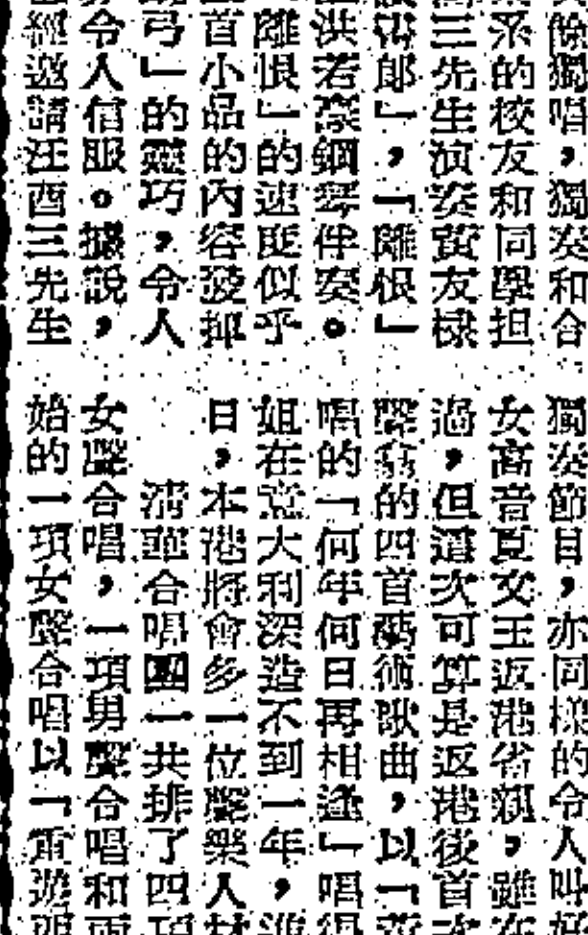 獨唱，獨奏和合
系的校友和同學担
三先生演奏黃友棣
郎」，「離恨」
洪若豪鋼琴伴奏。
離恨」的速度似乎
首小品的內容發揮
弓」的靈巧，令人
令人信服。據說，
經邀請汪酉三先生
獨奏節目，亦同樣的令人叫好
女高音夏文玉返港省親，雖在
過，但這次可算是返港後首次
的四首藝術歌曲，以「
唱的「何年何日再相逢」唱得
姐在意大利深造不到一年，進
日，本港將會多一位聲樂人材
清華合唱團一共排了四項
女聲合唱，一項男聲合唱和兩
始的一項女聲合唱以「雷遊